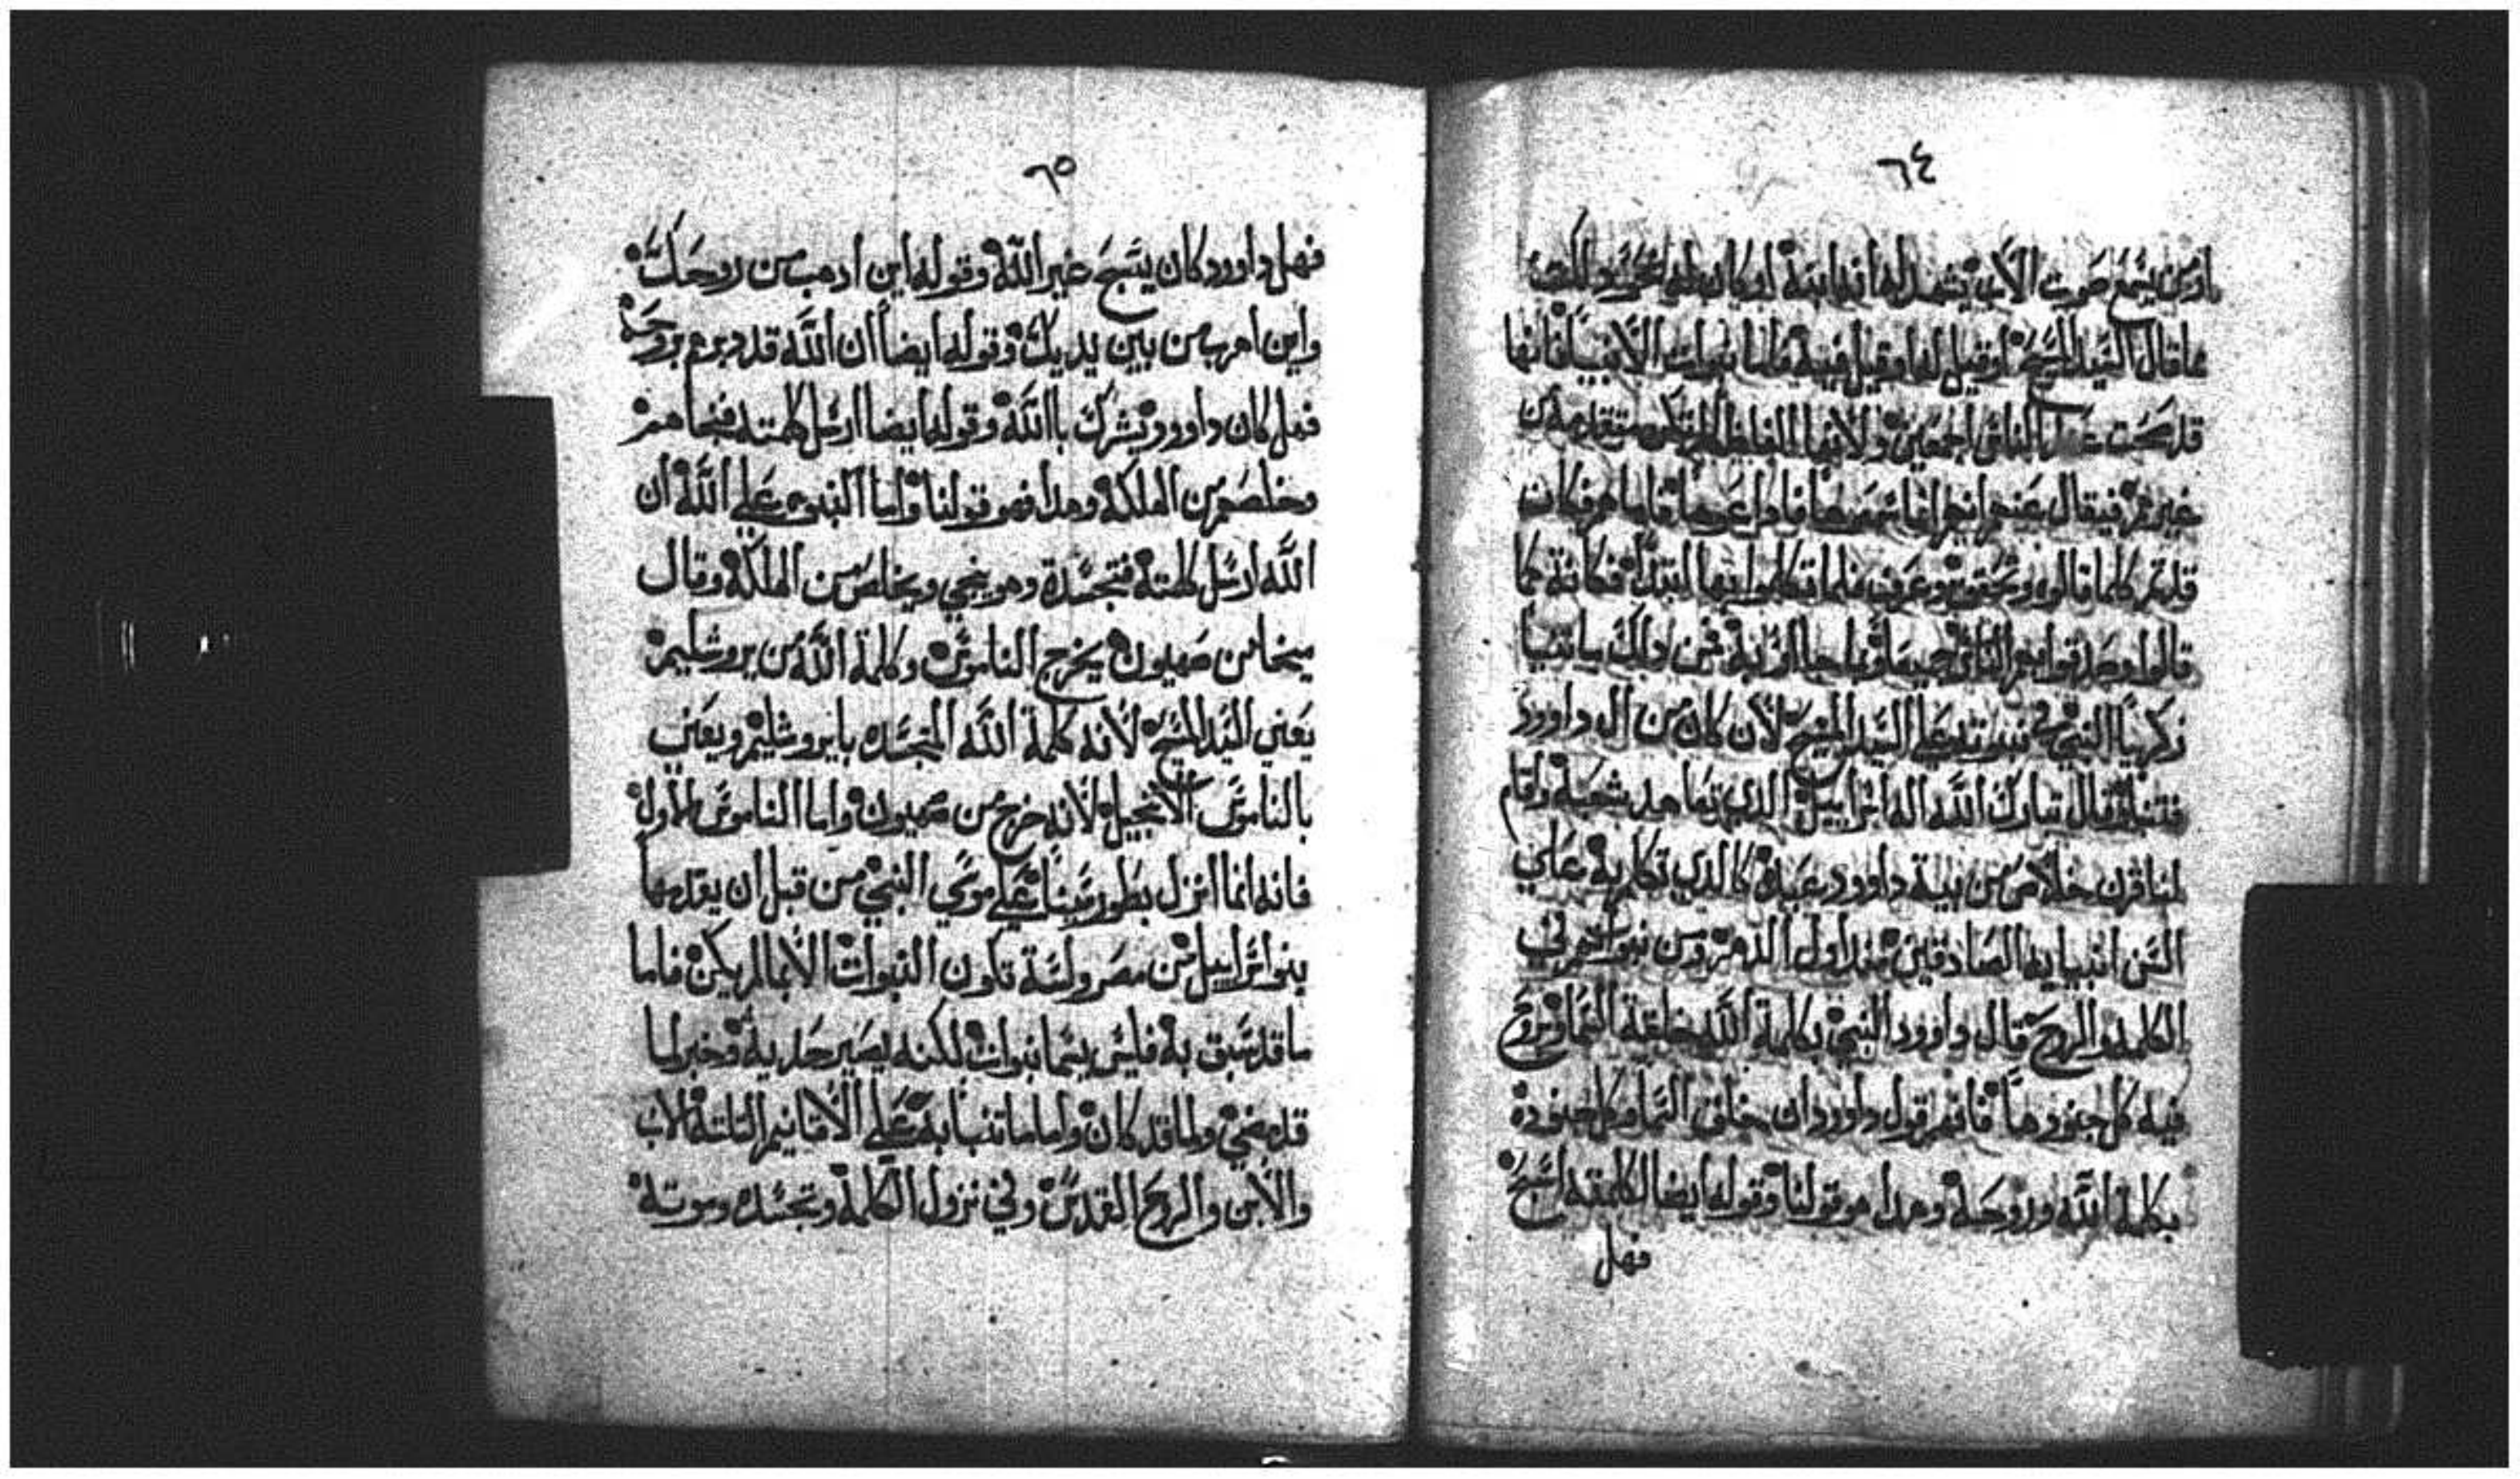 ٦٤
صوت الاب يشهد له انه ابنه او كان
ما قال السيد المسيح او قيل له او قيل فيه فاما نبوات الانبيا فانها
قد صحت عند الناس اجمعين
غيرهم فيقال عنهم انهم انما
قد تم كلما قالوه وتحقق وعرف فلما تكلموا بها ابتدا فكانة كما
قالوا وصدقوا معهم الناس جميعا فمن دلك ما تنبا
زكريا النبي في نبوته على السيد المسيح لان كان من ال داوود
فتنبا وقال تبارك الله اله اسراييل الدي تعاهد شعبه واقام
لنا قرن خلاص من بيت داوود عبده كالدي تكلم به على
السن انبيايه الصادقين مند اول الدهر ومن نبواتهم في
الكلمه والروح قال داوود النبي بكلمة الله خلقة السما وبروح
فيه كل جنودها فافهم قول داوود ان خلق السما وكل جنوده
بكلمة الله وروحه وهدا هو قولنا وقوله ايضا لكلمته اسبح
فهل
٦٥
فهل داوود كان يسبح غير الله وقوله اين ادهب من روحك
واين اهرب من بين يديك وقوله ايضا ان الله قد دبرهم بروحه
فهل كان داوود يشرك باالله وقوله ايضا ارسل كلمته فنجاهم
وخلصهم من الهلكه وهدا هو قولنا واما النبوه علي الله ان
الله ارسل كلمته فتجسدة وهو ينجي ويخلص من الهلكه وقال
ميخا من صهيون يخرج الناموس وكلمة الله من يروشليم
يعني السيد المسيح لانه كلمة الله المتجسده بايروشليم ويعني
بالناموس الانجيل لانه خرج من صهيون واما الناموس الاول
فانه انما انزل بطور سينا علي موسي النبي من قبل ان يقدمها
بنو اسراييل من مصر وليسة تكون النبوات الا بما لم يكن فاما
ما قد سبق به فليس يسما نبوات لكنه يصير حديه وخبر لما
قد مضي ولما قد كان واما ما تنبا به علي الاقانيم التلتة الاب
والابن والروح القدس وفي نزول الكلمة وتجسده وموته